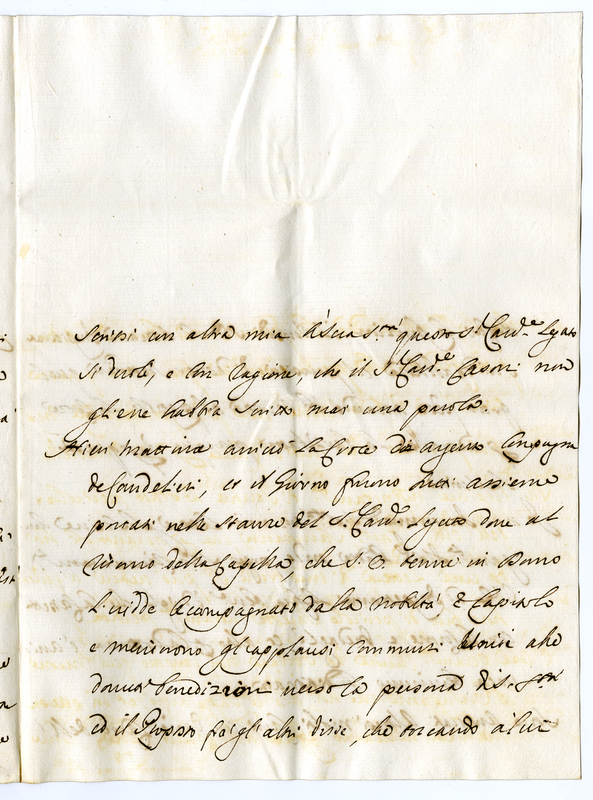 Scrissi con altra mia à Sua S.ria questo S.r Card.le Legato
si duole, e con ragione, che il S.r Card.le Casoni non
gliene habbia scritto mai una parola.
Hieri mattina arrivò la Croce di argento compagna
de Candelieri, et il Giorno furono tutti assieme
portati nelle stanze del S.r Card.le Legato dove al
ritorno della Capella, che S. E. tenne in Duomo
li vidde accompagnato dalla nobiltà, e Capitolo
e meritorono gl'applausi communi alle
dovute benedizioni verso la persona di S.
ed il Proposto frà gl'altri disse, che toccando à lui